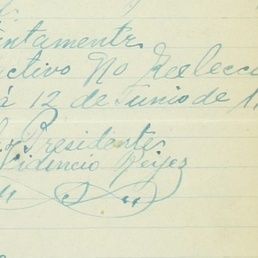 ntamente
ctivo No Reelecci
a 12 de Junio de 1
Presidente
idencio Reyes